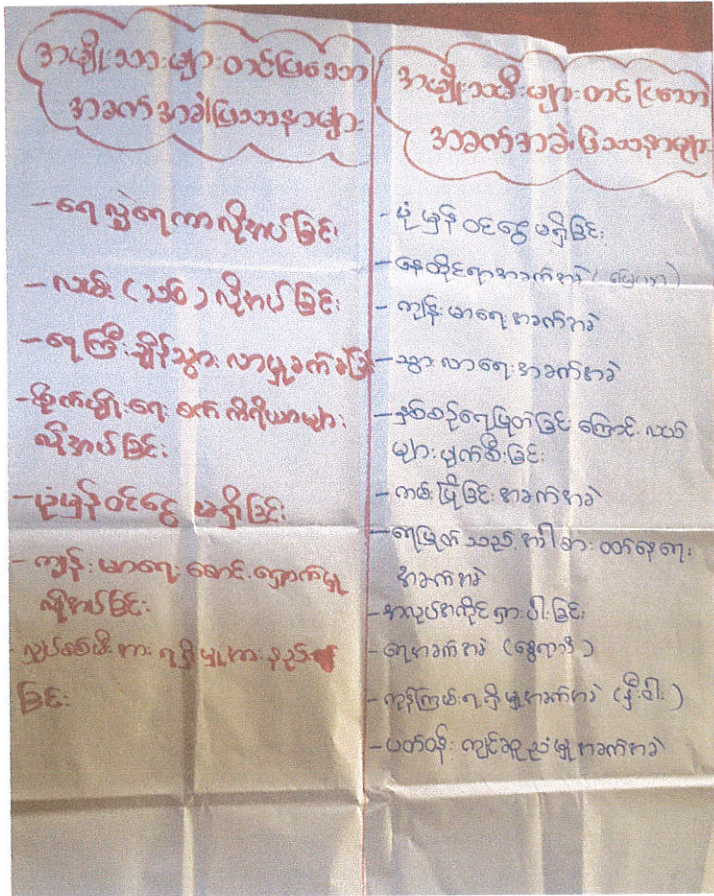 အမျိုးသားများတင်ပြသော
အခက်အခဲပြဿနာများ
- ရေလှဲရေကာလိုအပ်ခြင်း
- လမ်း (သစ်) လိုအပ်ခြင်း
- ရေကြီးချိန်သွားလာမှုခက်ခဲခြင်း
- စိုက်ပျိုးရေး စက်ကိရိယာများ
လိုအပ်ခြင်း
- ပုံမှန်ဝင်ငွေ မရှိခြင်း
- ကျန်းမာရေး စောင့်ရှောက်မှု
လိုအပ်ခြင်း
- လျှပ်စစ်မီးအား ရရှိမှုအားနည်း
ခြင်း
အမျိုးသမီးများတင်ပြသော
အခက်အခဲပြဿနာများ
- ပုံမှန်ဝင်ငွေမရှိခြင်း
- နေထိုင်ရာအခက်အခဲ
- ကျန်းမာရေးအခက်အခဲ
- သွားလာရေးအခက်အခဲ
- နှစ်စဉ်ရေမြုတ်ခြင်းကြောင့် လယ်
များပျက်စီးခြင်း
- ကမ်းပြိုခြင်းအခက်အခဲ
- ရေမြုတ်သည့်အခါ စားဝတ်နေရေး
အခက်အခဲ
- အလုပ်အကိုင်ရှားပါးခြင်း
- ရေအခက်အခဲ (နွေရာသီ)
- ကုန်ကြမ်းရရှိမှုအခက်အခဲ (နှီး၊ဝါး)
- ပတ်ဝန်းကျင်အခက်အခဲ